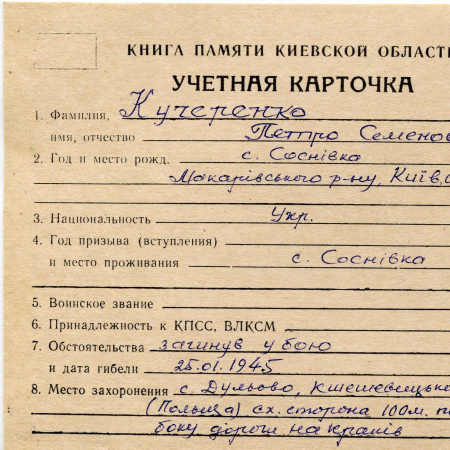 КНИГА ПАМЯТИ КИЕВСКОЙ ОБЛАСТ
УЧЕТНАЯ КАРТОЧКА
1. Фамилия, Кучеренко
имя, отчество Петро Семенов
2. Год и место рожд. с. Соснівка
Макарівського р-ну, Київ.
3. Национальность Укр.
4. Год призыва (вступления)
и место проживания с. Соснівка
5. Воинское звание
6. Принадлежность к КПСС, ВЛКСМ
7. Обстоятельства загинув у бою
и дата гибели 25.01.1945
8. Место захоронения с. Дульово, Кшешевицько
(Польща) сх. сторона 100м.
боку дороги на Краків